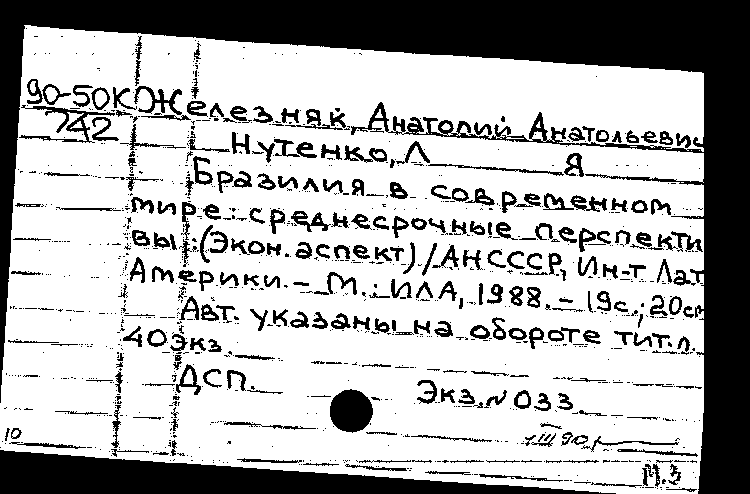 90-50К Железняк, Анатолий Анатольевич
742
Нутенко, Л Я
Бразилия в современном
мире: среднесрочные перспекти
вы: (Экон. аспект) / АН СССР, Ин-т Лат.
Америки. – М.: ИЛА, 1988. – 19с.; 20см
Авт. указаны на обороте тит.л.
40 экз.
ДСП. Экз.№ 033.
1.III 90 г.
10
М.З